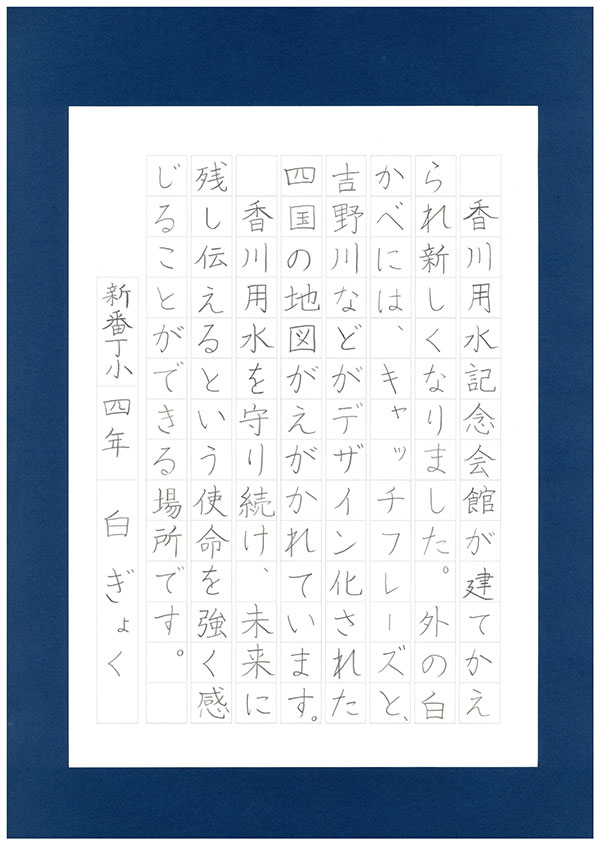 香川用水記念会館が建てかえ
られ新しくなりました。外の白
かべには、キャッチフレーズと、
吉野川などがデザイン化された
四国の地図がえがかれています。
香川用水を守り続け、未来に
残し伝えるという使命を強く感
じることができる場所です。
新番丁小 四年 白 ぎょく